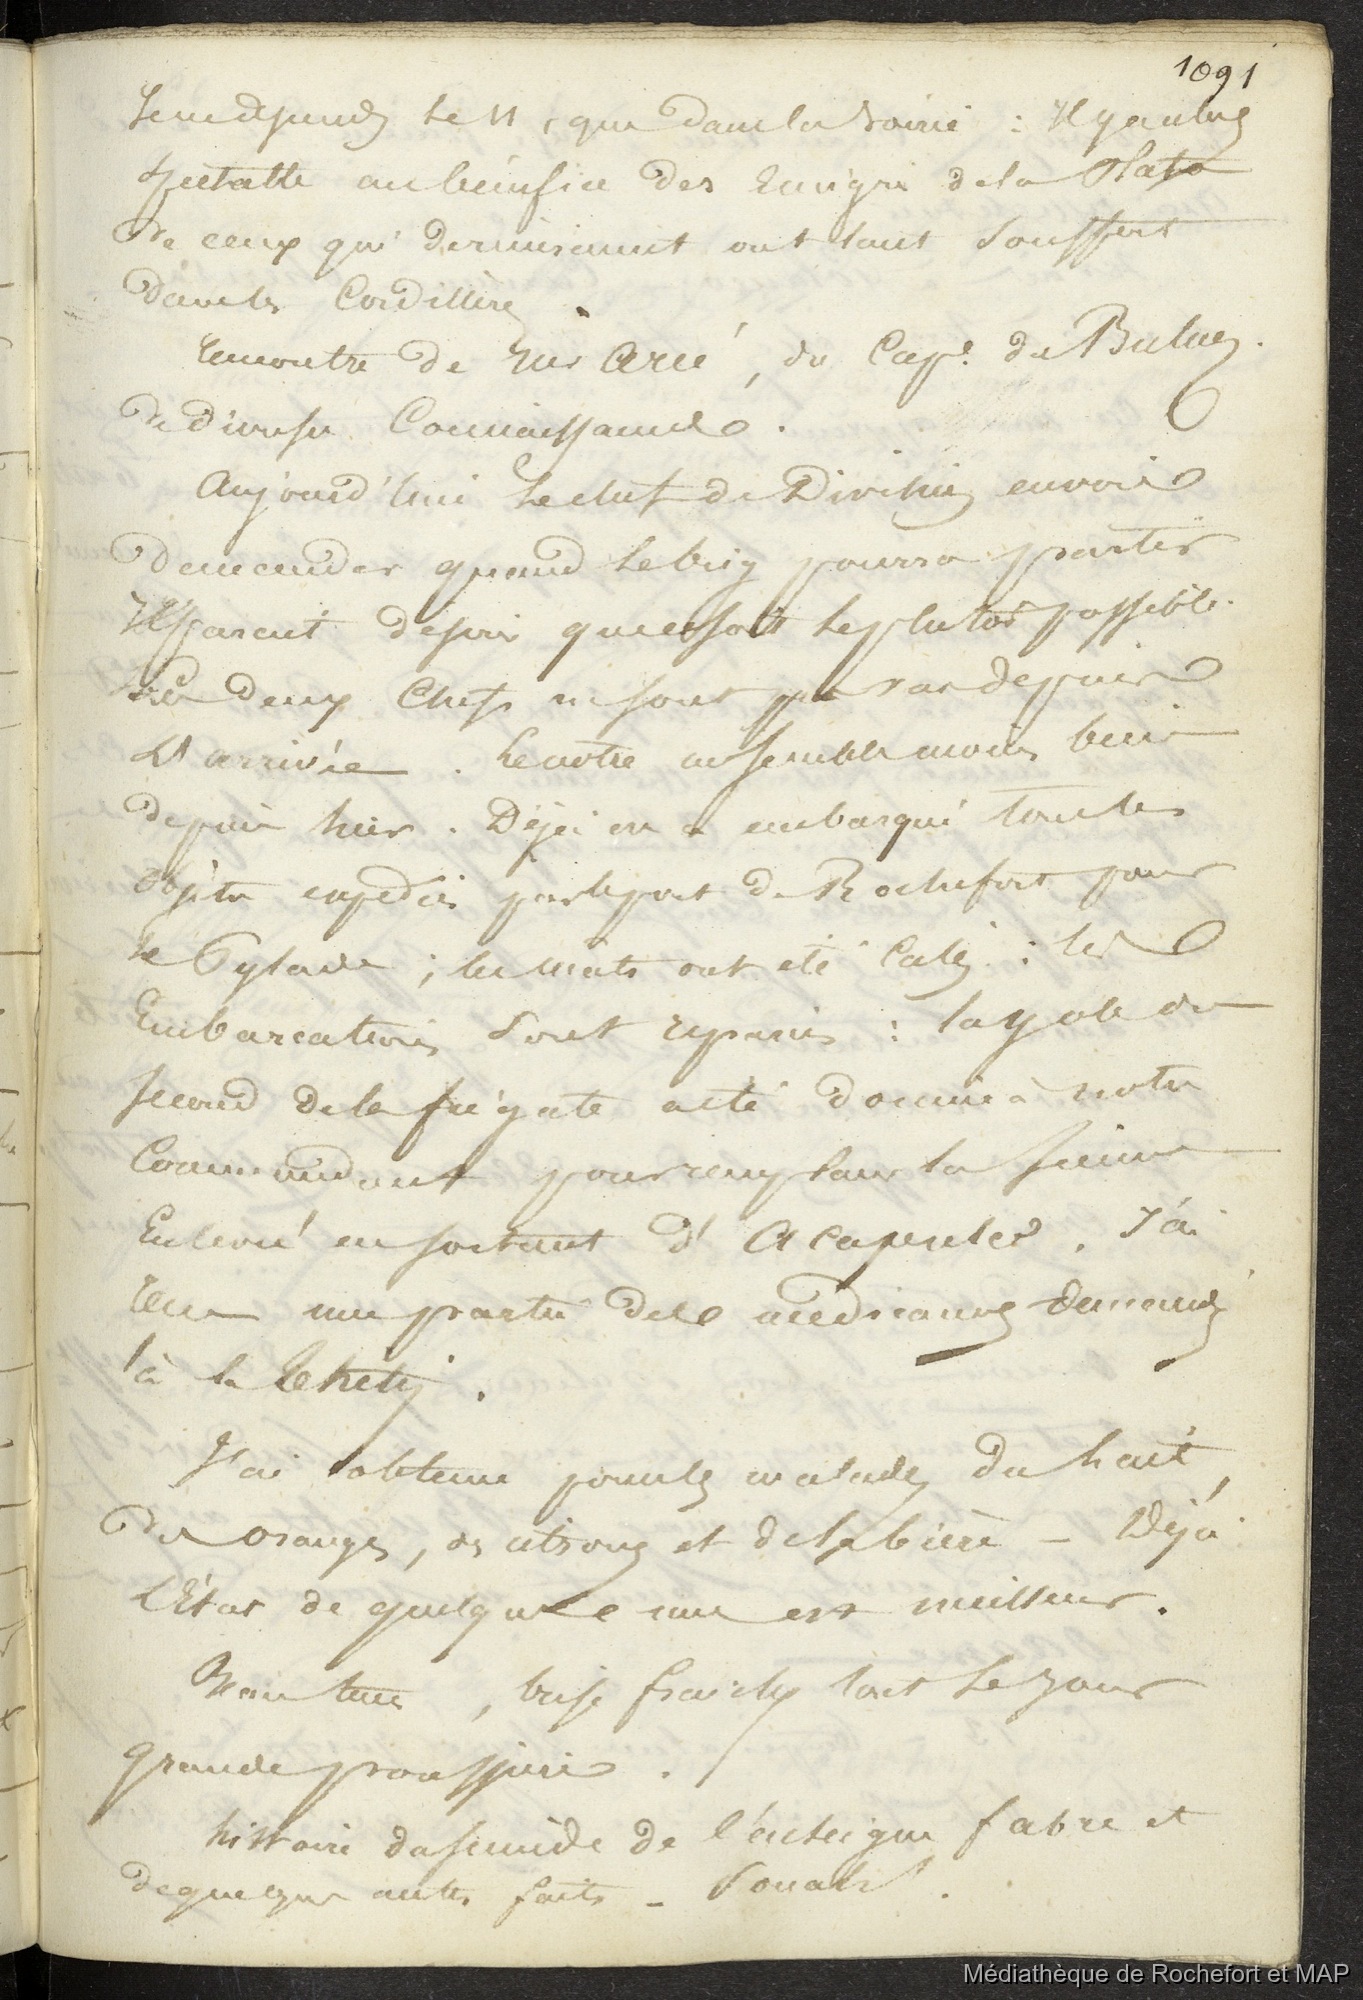 1091
Je ne descends le 11, que dans la soirée : Il y eut un
spectacle au bénéfice des émigrés de la Plata
De ceux qui dernièrement ont tant souffert
dans les Cordillères.
rencontre de Mr , du Cape. du
de diverses connaissances.
Aujourd'hui le chef de Division envoie
Demander quand le brig pourra partir
Il parait désirer que ce soit le plutôt possible.
Les deux Chefs ne sont pas vus depuis
L'arrivée. Le notre me semble moins bien
depuis hier. Déjà on a embarqué tous les
objets expédiés par le port de Rochefort pour
le Pylade ; les mats ont été calés : les
Embarcations sont réparées : la yole du
second de la frégate a été donnée à notre
Commandant pour remplacer la sienne
Enlevée en sortant d'Acapulco. J'ai
reçu une partie des médicamens demandés
à la
J'ai obtenu pour les malades du lait,
Des oranges, des citrons et de la bière – Déjà
L'État de quelques uns est meilleur.
Beau tems, brise fraiche tout le jour
grande poussière.
histoire du suicide de l'enseigne fabre et
de quelques autres faits –
Médiathèque de Rochefort et MAP